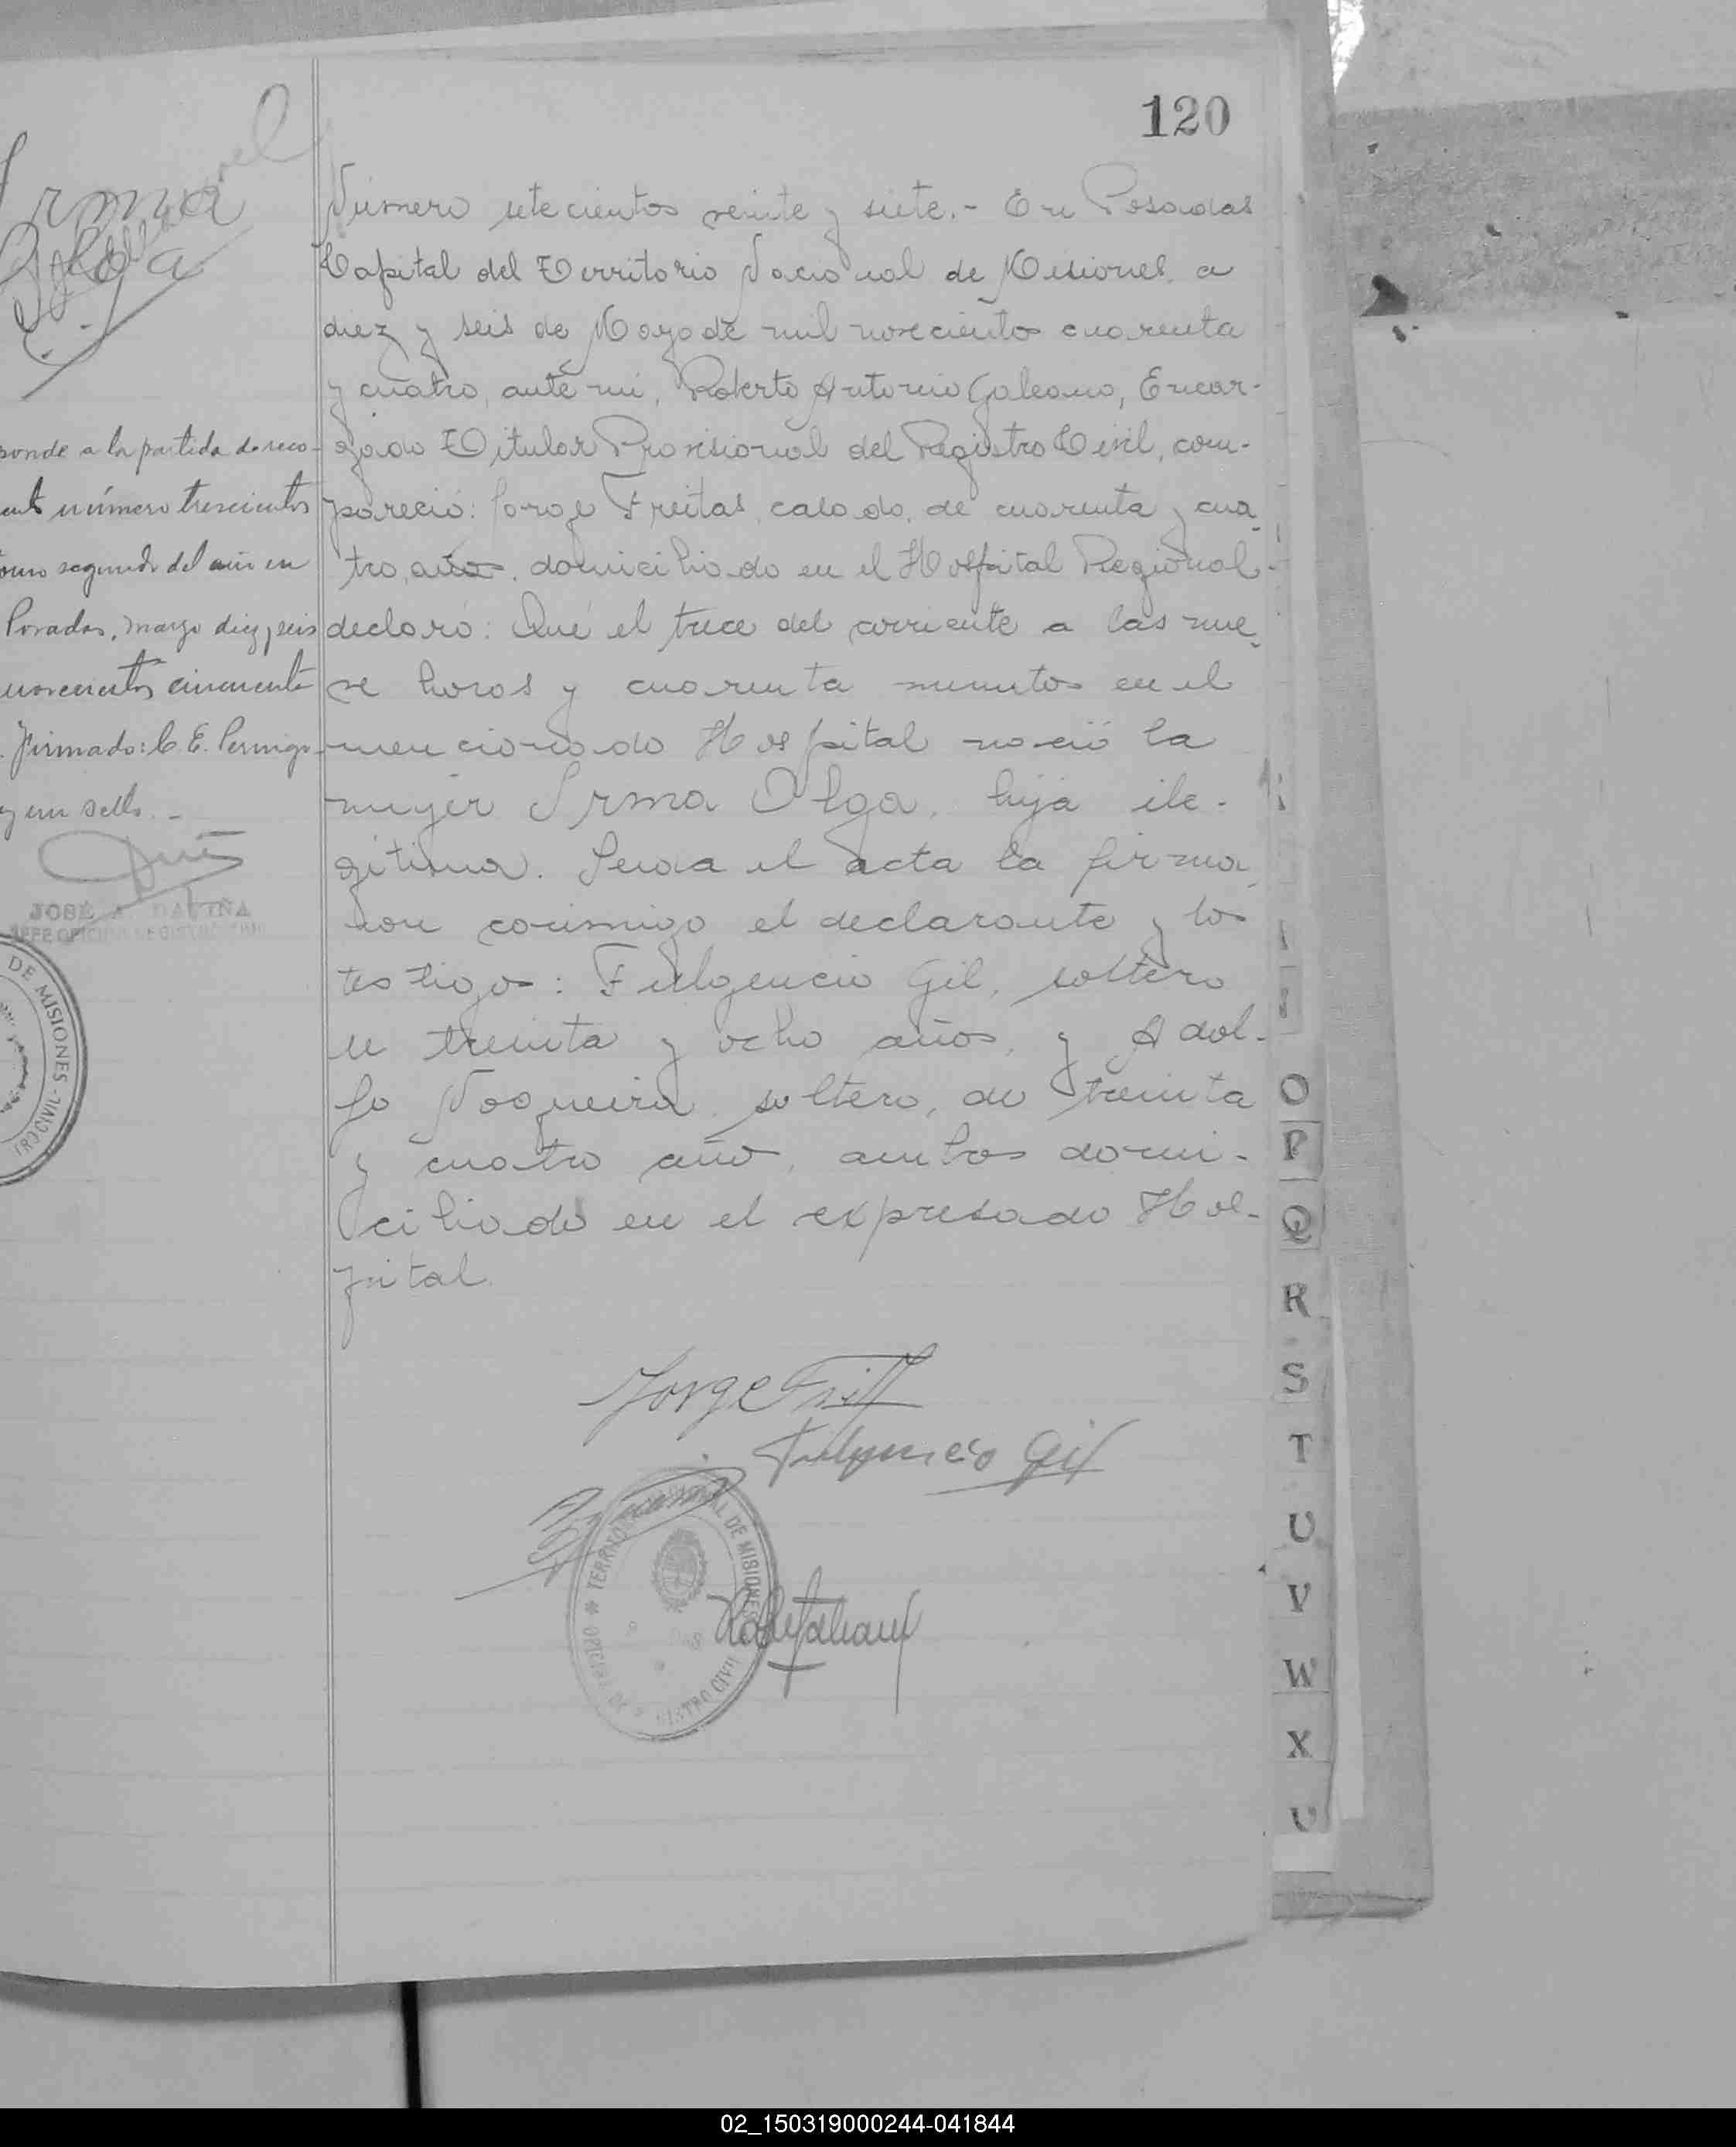 120
Irma
Olga
ponde a la partida de reco-
número trescientos
segundo del año en
Posadas, marzo diez y seis
novecientos cincuenta
. Firmado: C. E. Pernigo
y un sello. -
JOSÉ A. DAVIÑA
JEFE OFICINA REGISTRO CIVIL
DE MISIONES - 
TRO CIVIL
Número setecientos veinte y siete.- En Posadas
Capital del Territorio Nacional de Misiones, a
diez y seis de Mayo de mil novecientos cuarenta
y cuatro, ante mi, Roberto Antonio Galeano, Encar-
gado Titular Provisional del Registro Civil, com-
pareció: Jorge Freitas, casado, de cuarenta y cua-
tro, años, domiciliado en el Hospital Regional-
declaró: Que el trece del corriente a las nue-
ve horas y cuarenta minutos en el
mencionado Hospital nació la
mujer Irma Olga, hija ile-
gitima. Leida el acta la firma-
ron conmigo el declarante y los
testigos: Fulgencio Gil, soltero
de treinta y ocho años, y Adol-
fo Nogueira, soltero, de treinta
y cuatro años, ambos domi-
ciliados en el expresado Hos-
pital.
Jorge Freit
Fulgencio Gil
TERRITORIO NACIONAL DE MISIONES
OFICINA DE REGISTRO CIVIL
O
P
Q
R
S
T
U
V
W
X
02_150319000244-041844